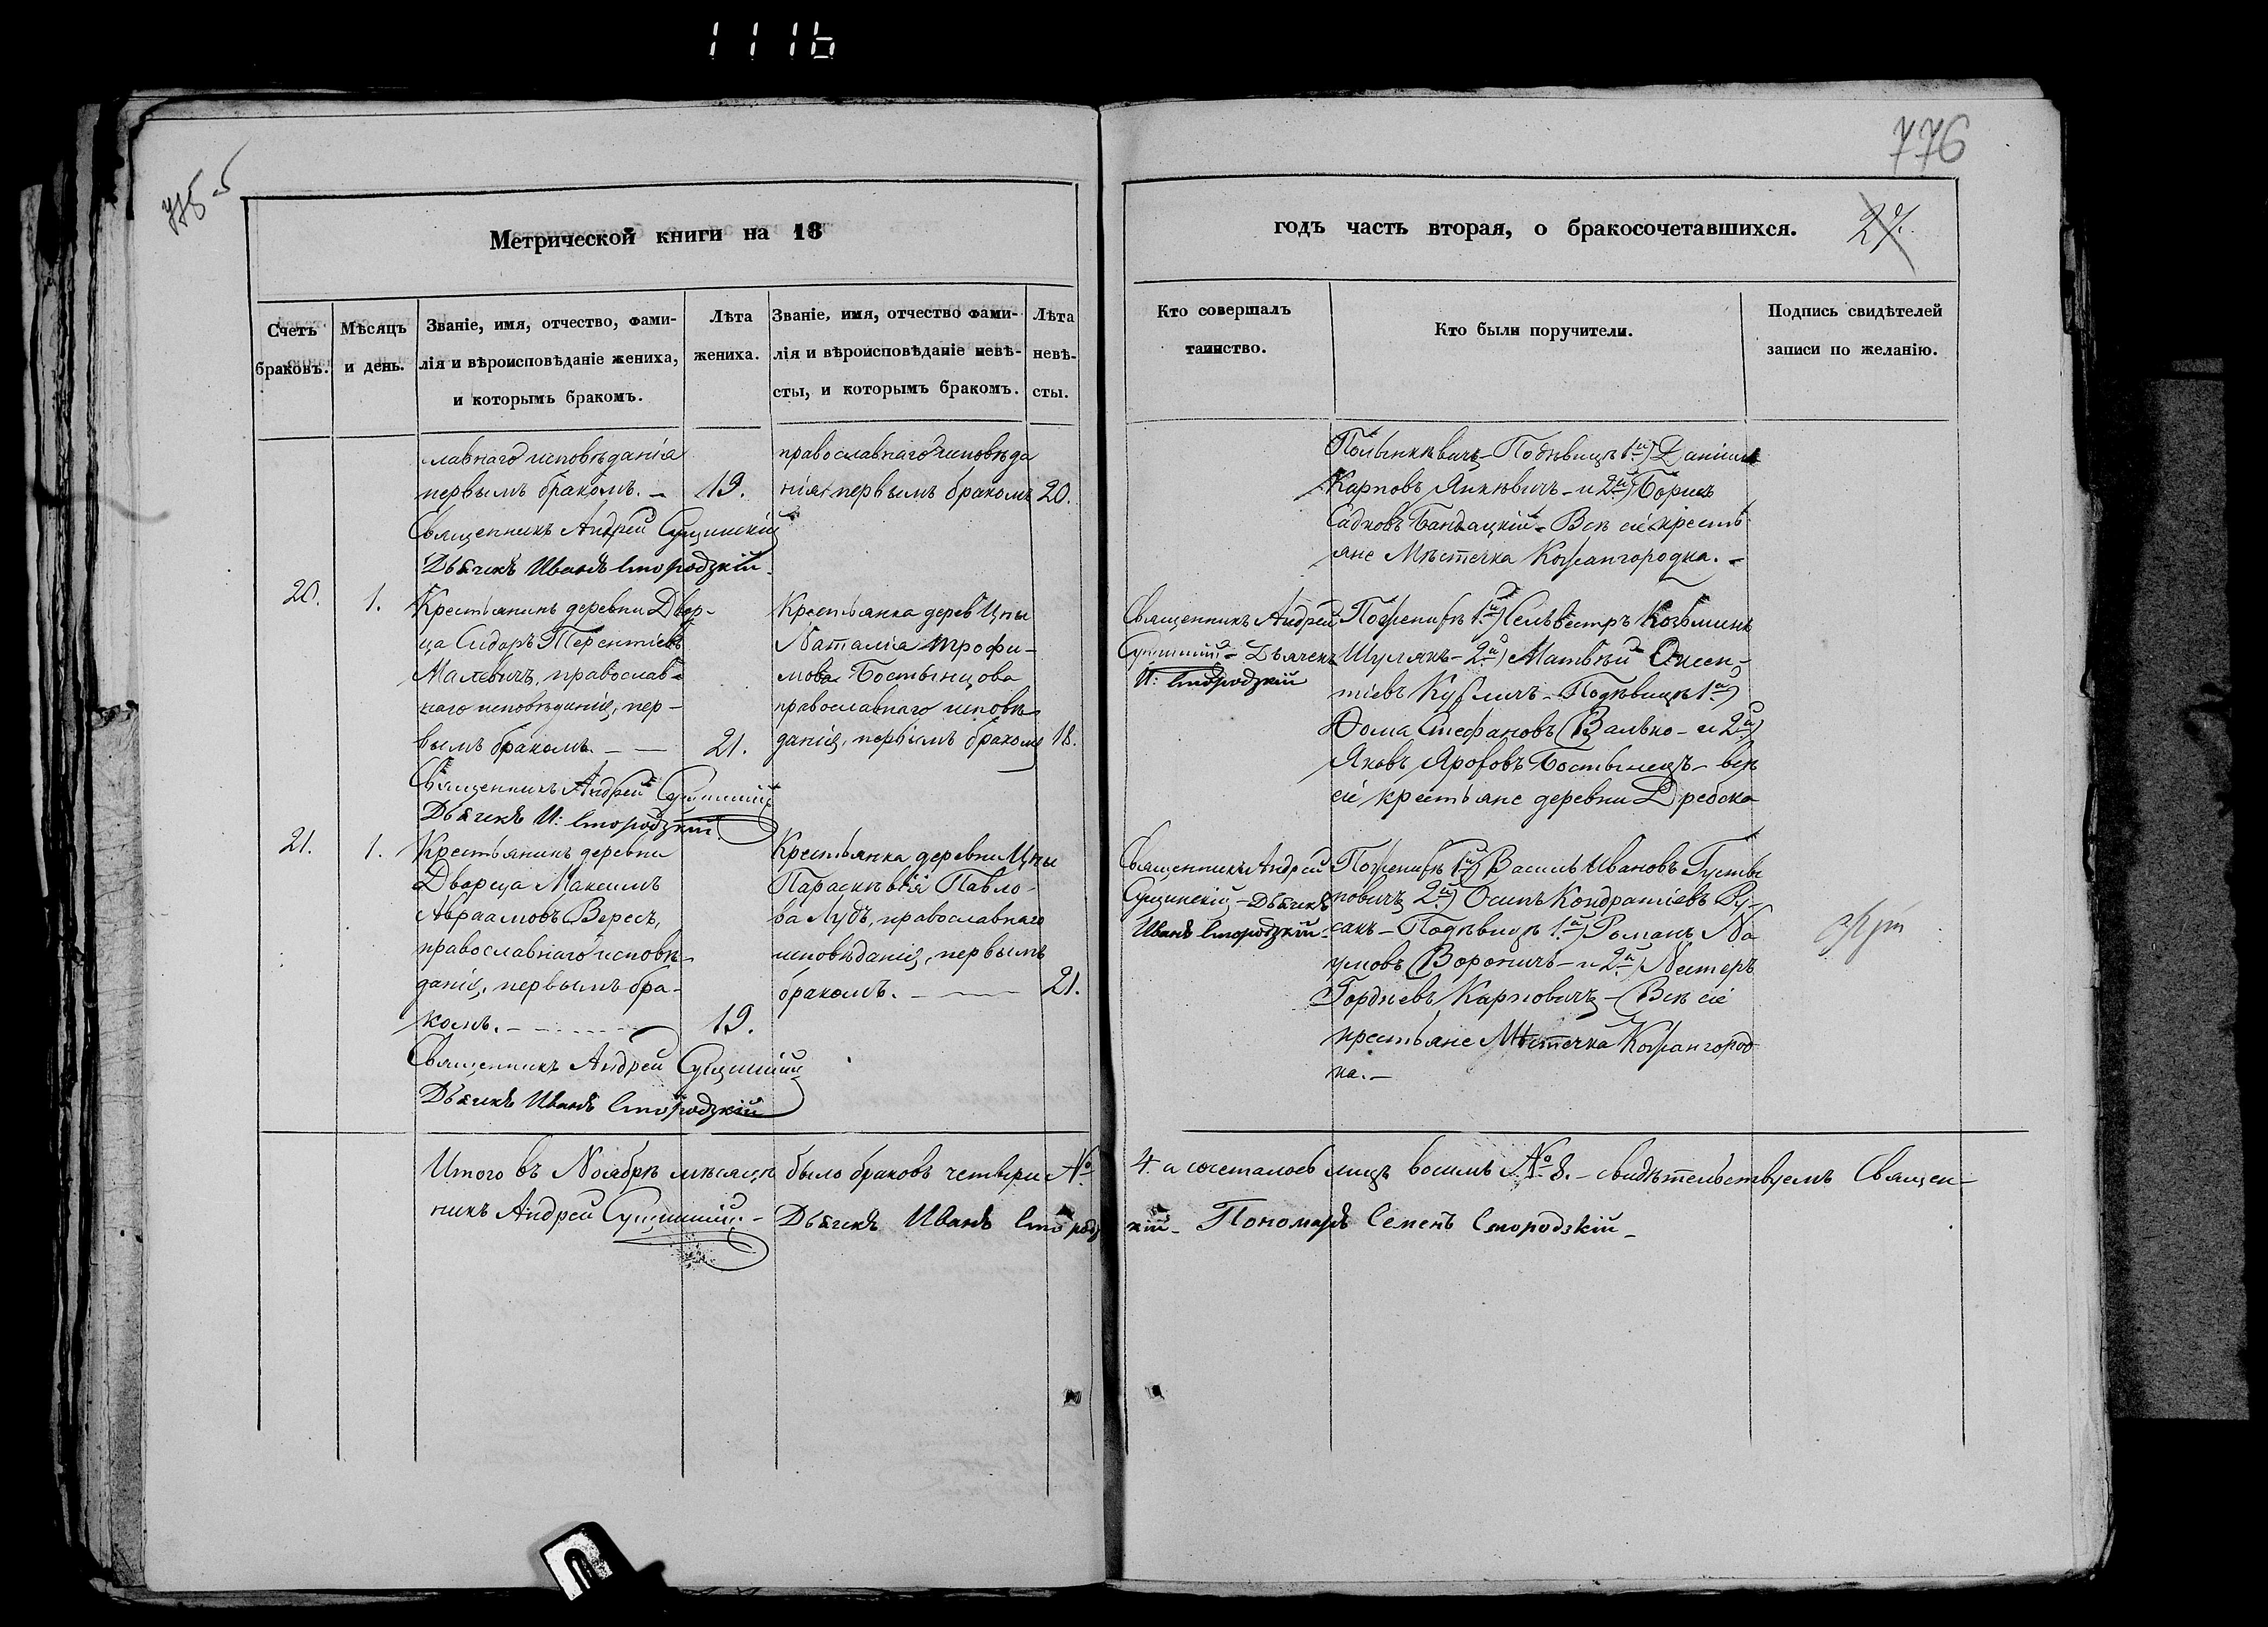 1116
776
Метрической книги на 18
годъ часть вторая, о бракосочетавшихся.
27.
Счетъ браковъ.
Мѣсяцъ и день.
Званіе, имя, отчество, фами-
лія и вѣроисповѣданіе жениха,
и которымъ бракомъ.
Лѣта
жениха.
Званіе, имя, отчество фами-
лія и вѣроисповѣданіе невѣ-
сты, и которымъ бракомъ.
Лѣта
невѣ-
сты.
Кто совершалъ
таинство.
Кто были поручители.
Подпись свидѣтелей
записи по желанію.
лавнаго исповѣданія
первымъ бракомъ. – 19.
Священникъ Андрей Сущинскій
Дьячекъ Иванъ Стородзкій.
православнаго исповѣда
нія, первымъ бракомъ 20.
Карповъ Янкевичъ – и 2й) Борисъ
Садковъ Бандацкій – Всѣ сіе кресть
яне Мѣстечка Кожангородка. –
20. 1.
Крестьянинъ деревни Двор-
ца Сидоръ Терентіевъ
Малевичъ, православ-
наго исповѣданія, пер-
вымъ бракомъ. – — 21.
Священникъ Андрей Сущинскій
Дьячекъ И: Стородзкій
Крестьянка дерев Цны
Наталія Трофи-
мова Бостынцова
православнаго исповѣ-
данія, первымъ бракомъ 18.
Священникъ Андрей
Сущинскій – Дьячекъ
И: Стородзкій
По женихѣ 1й) Селвестръ Козьминъ
Шулякъ – 2й) Матвѣй Оксен-
тіевъ Кужличъ – По дѣвицѣ 1й)
Фома Стефановъ Валько – и 2й)
Яковъ Ярофовъ Бостынецъ – всѣ
сіе крестьяне деревни Дребска
21. 1.
Крестьянинъ деревни
Дворца Максимъ
Авраамовъ Вересъ,
православнаго исповѣ-
данія, первымъ бра-
комъ. – 19.
Священникъ Андрей Сущинскій
Дьячекъ Иванъ Стородзкій
Крестьянка деревни Цны
Параскѣвія Павло-
ва Лудъ, православнаго
исповѣданія, первымъ
бракомъ. – — 21.
Священникъ Андрей
Сущинскій – Дьячекъ
Иванъ Стородзкій
По женихѣ 1й) Василь Ивановъ
новичъ 2й) Осипъ Кондратіевъ Ру-
сакъ – По дѣвицѣ 1й) Романъ На
умовъ Вороничъ – и 2й) Нестеръ
Гордѣевъ Карповичъ – Всѣ сіе
крестьяне Мѣстечка Кожангород
ка. –
Итого въ Ноябрѣ мѣсяцѣ было браковъ четыри № 4. а сочеталось лицъ восимъ № 8. – свидѣтельствуемъ Священ-
никъ Андрей Сущинскій – Дьячекъ Иванъ Стородзкій – Пономаръ Семенъ Стородзкій –